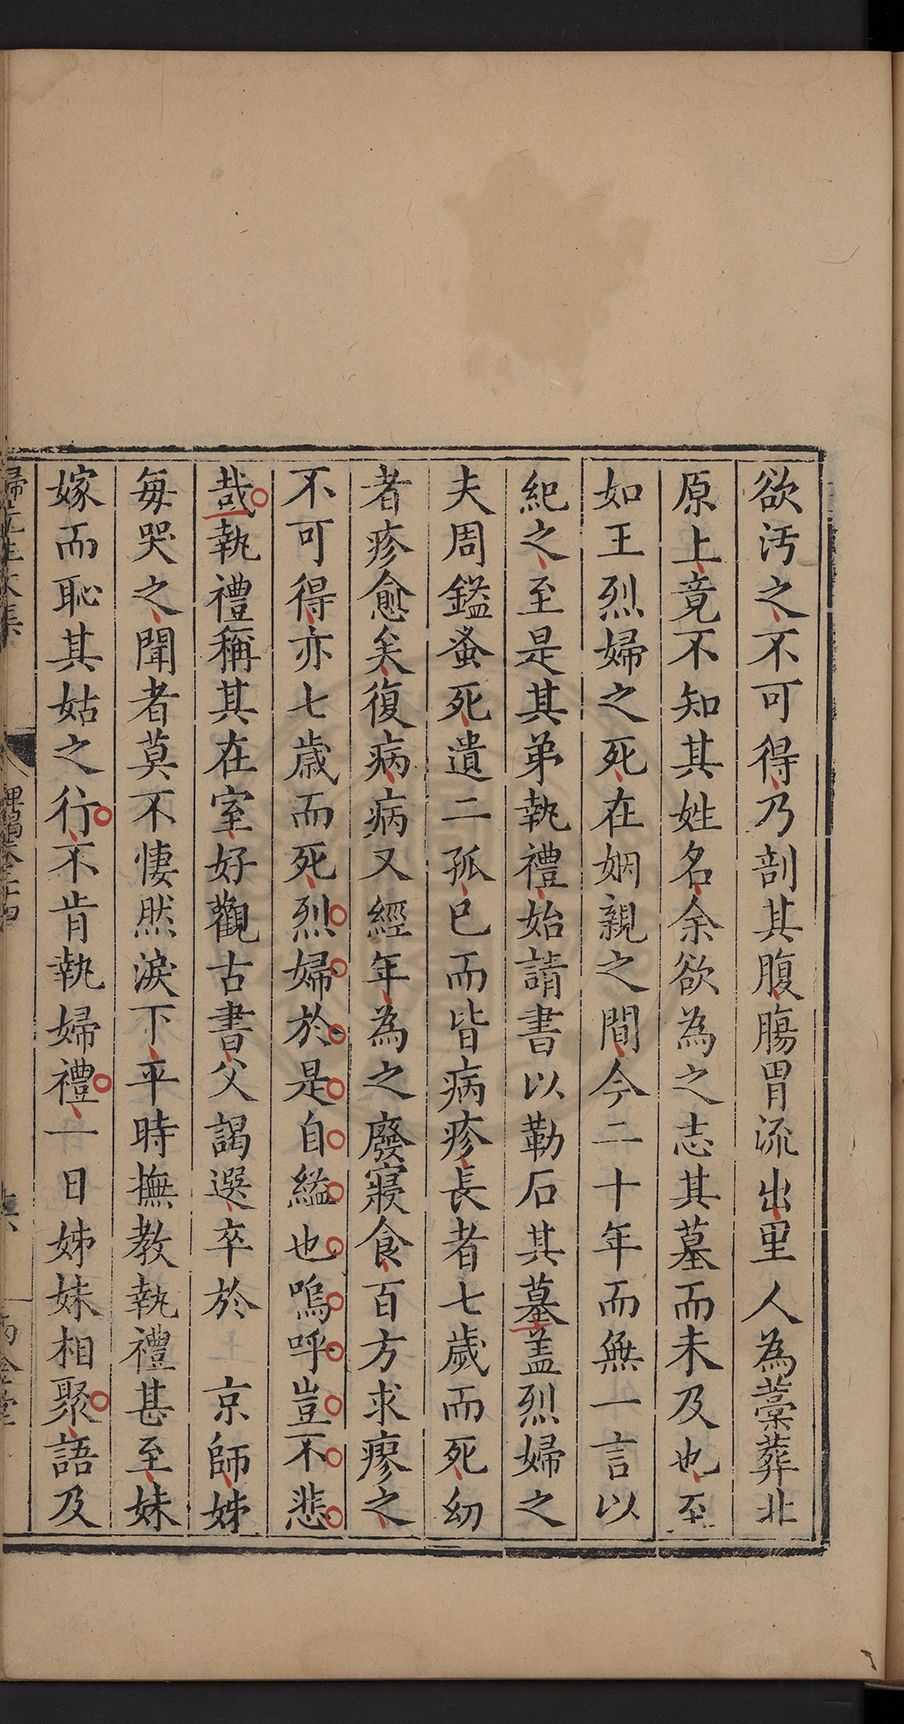 欲汚之不可得乃剖其腹膓胃流出里人為藁葬北
原上竟不知其姓名余欲為之志其墓而未及也至
如王烈婦之死在姻親之間今二十年而無一言以
紀之至是其弟執禮始請書以勒石其墓盖烈婦之
夫周鎰蚤死遺二孤已而皆病疹長者七歲而死幼
者疹愈矣復病病又經年為之廢寢食百方求瘳之
不可得亦七歲而死烈婦於是自縊也嗚呼豈不悲
哉執禮稱其在室好觀古書父謁選卒於　京師姊
每哭之聞者莫不悽然淚下平時撫教執禮甚至妹
嫁而恥其姑之行不肯執婦禮一日姊妹相聚語及